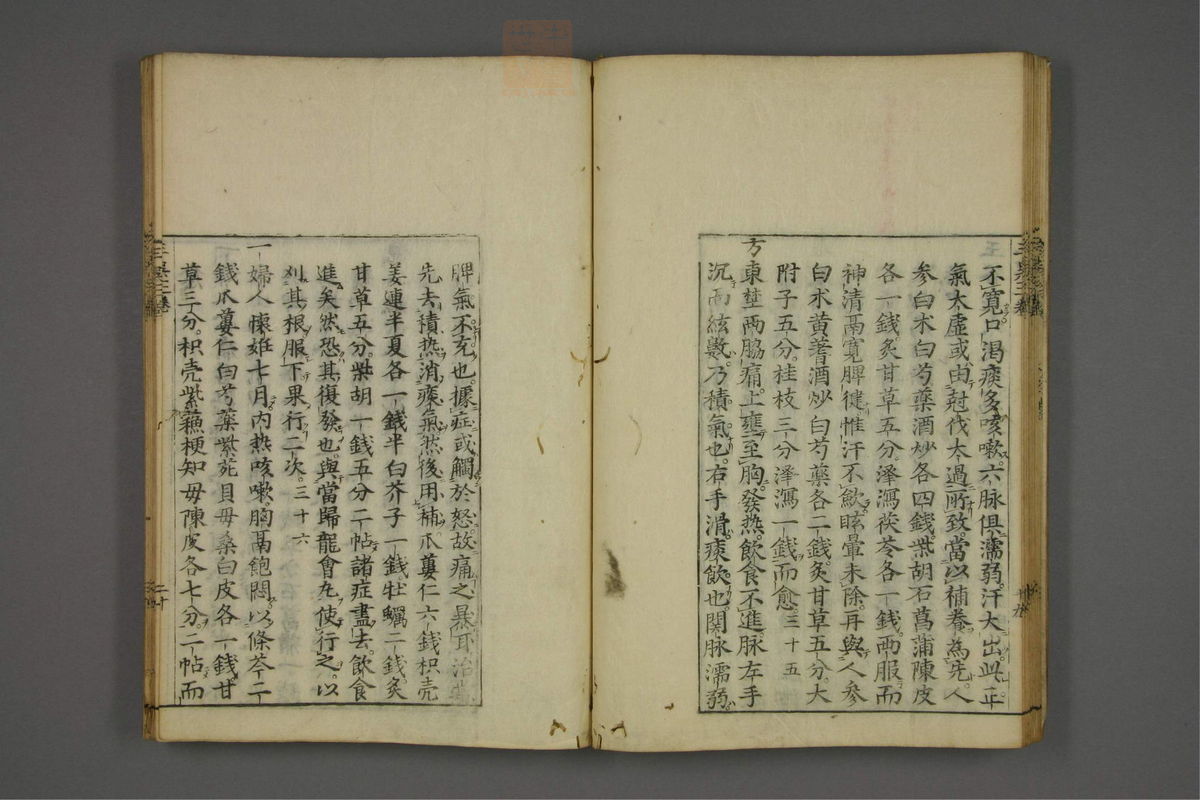 不寬口渴痰多咳嗽六脉俱濡弱汗大出此正
氣太虛或由尅伐太過所致當以補養為先人
參白术白芍藥酒炒各四錢柴胡石菖蒲陳皮
各一錢炙甘草五分澤瀉茯苓各一錢兩服而
神清鬲寬脾徤惟汗不歛眩暈未除再與人參
白术黃蓍酒炒白芍藥各二錢炙甘草五分大
附子五分桂枝三分澤瀉一錢而愈三十五
方東埜兩脇痛上壅至胸發熱飲食不進脉左手
沉而絃數乃積氣也右手滑痰飲也関脉濡弱
脾氣不充也據症或觸於怒故痛之暴耳治當
先去積熱消痰氣然後用補爪蔞仁六錢枳壳
姜連半夏各一錢半白芥子一錢牡蠣二錢炙
甘草五分柴胡一錢五分二帖諸症盡去飲食
進矣然恐其復發也與當歸龍會丸使行之以
刈其根服下果行二次三十六
一婦人懷姙七月内熱咳嗽胸鬲飽悶以條芩二
錢爪蔞仁白芍藥紫菀貝毋桑白皮各一錢甘
草三分枳壳紫蘓梗知毋陳皮各七分二帖而